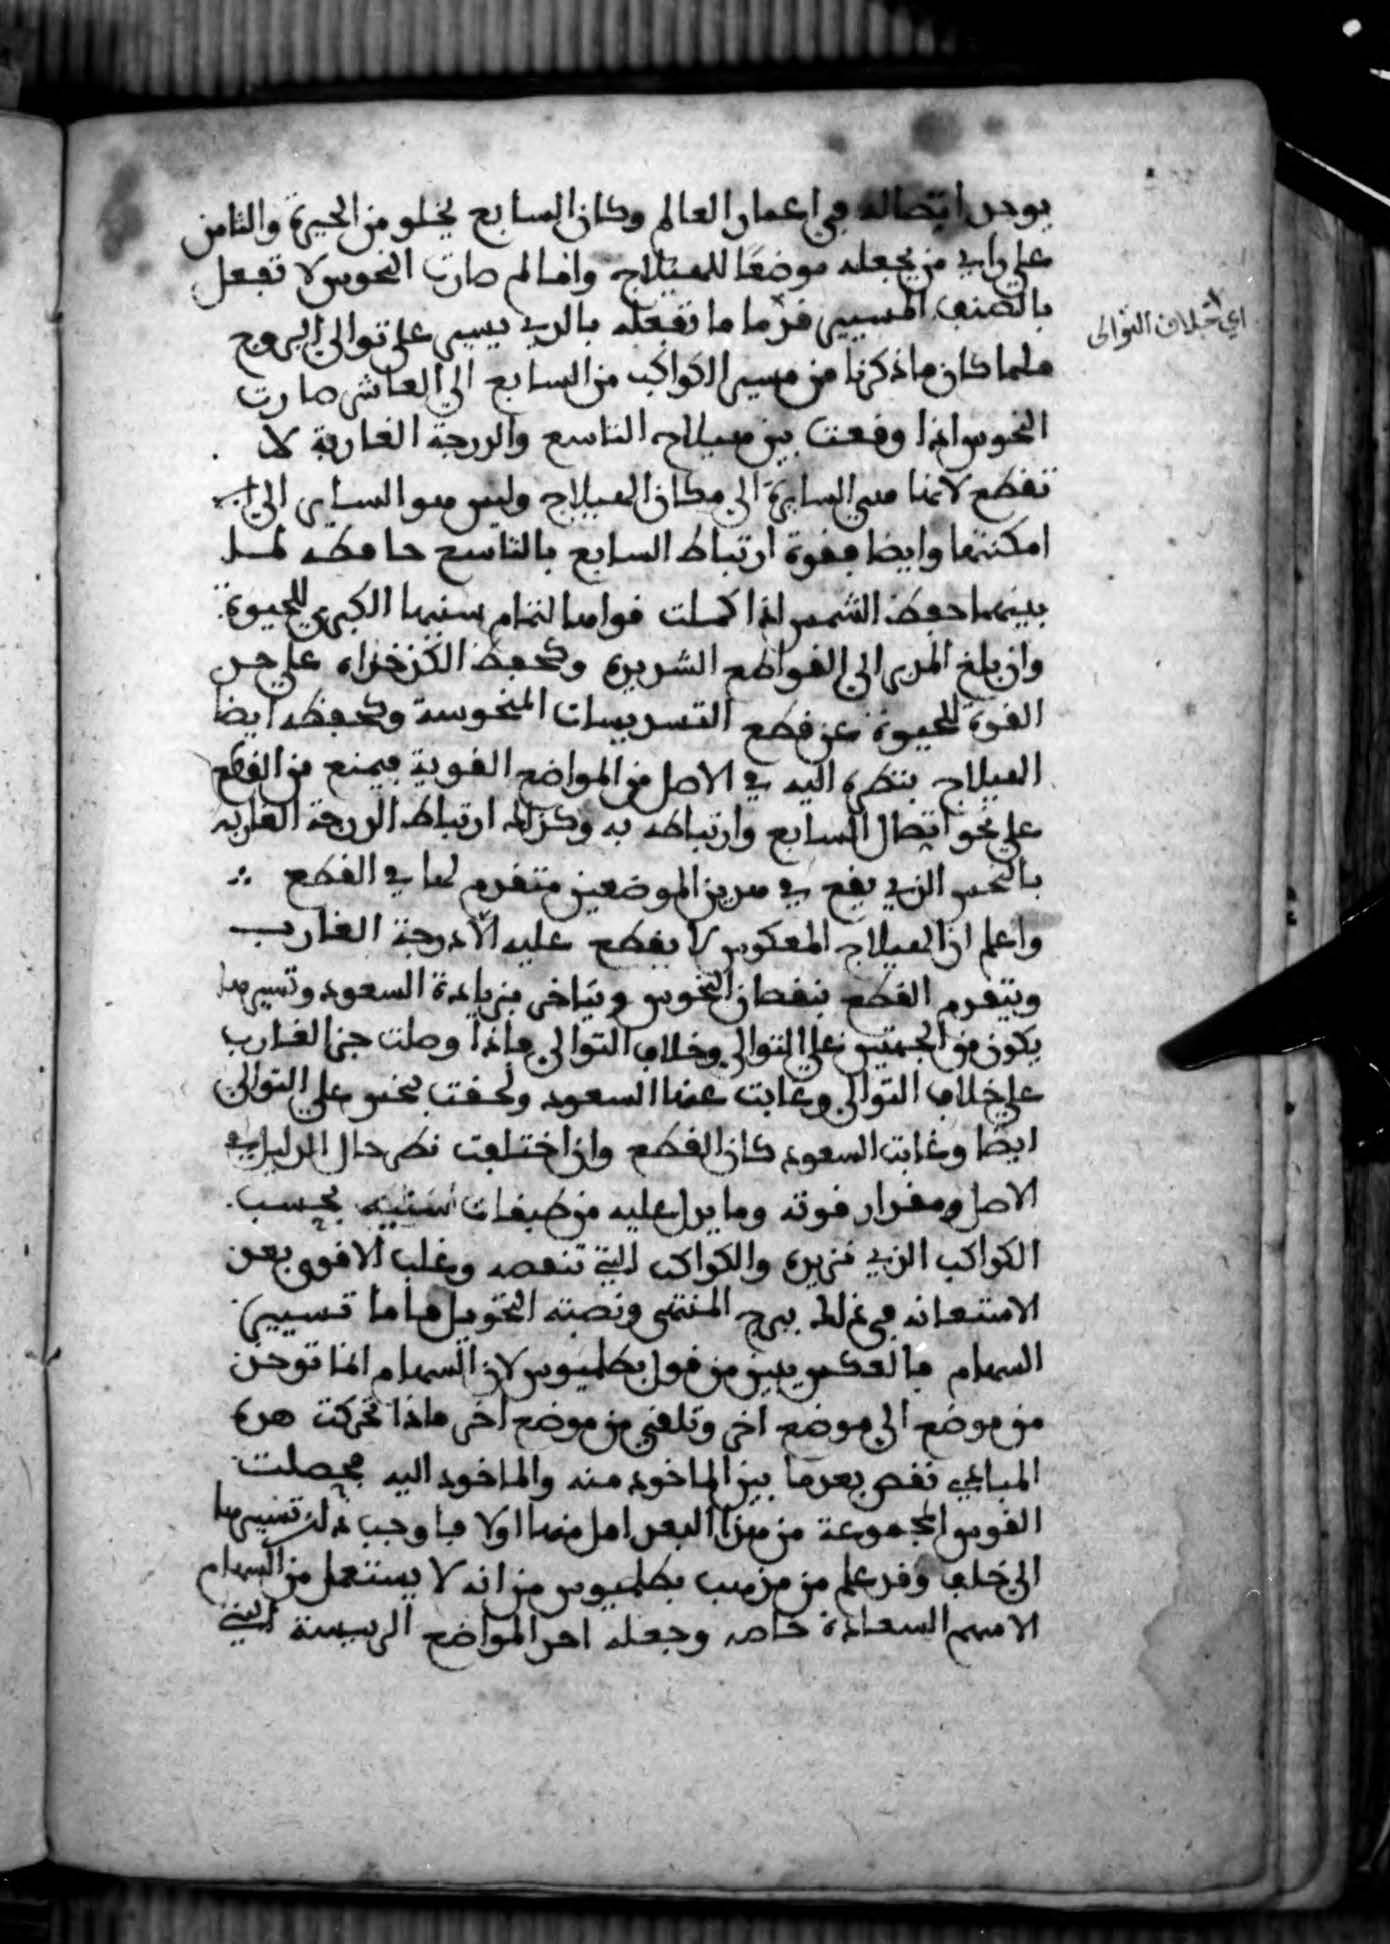 يوجد اتصاله في اعمار العالم وكان السابع يخلو من الحيرة والثامن
على راي من يجعله موضعا للهيلاج وانما لم صارت النحوس لا تفعل
بالصنف المسيير قدّما ما تفعله بالذي يسير على توالي البروج
اي خلاف التوالى
فلما كان ما ذكرنا من مسير الكواكب من السابع الى العاشر صارت
النحوس اذا وقعت بين هيلاج التاسع والدرجة الغاربة لا
تقطع لانها هي السايرة الى مكان الهيلاج وليس هو الساير الى
امكنتها وايضا فقوة ارتباط السابع بالتاسع حافظه لما
بينهما حفظ الشمس اذا كملت قواها لتمام سنيها الكبرى للحيوة
وان بلغ المدبر الى القواطع الشديدة ويحفظ الكدخداه على حد
القوة للحيوة عن قطع التسييرات المنحوسة ويحفظه ايضا
الهيلاج بنظره اليه في الاصل من المواضع القوية فيمنع من القطع
على نحو اتصال السابع وارتباطه به وكذلك ارتباط الدرجة الغاربة
بالنحس الذي يقع في هذين الموضعين متقدم لها في القطع ∴
واعلم ان الهيلاج المعكوس لا يقطع عليه الّا درجة الغارب
ويتقدم القطع بنقصان النحوس ويتاخر بزيادة السعود وتسييرها
يكون من الجهتين على التوالي وخلاف التوالي فاذا وصلت جزء الغارب
على خلاف التوالي وغابت عنها السعود ولحقت بنحس على التوالي
ايضا وغابت السعود كان القطع وان اختلفت نظر حال الدليل في
الاصل ومقدار قوته وما يدل عليه من طبقات سنيه بحسب
الكواكب الذي تزيده والكواكب التي تنقصه وغلب الاقوى بعد
الاستعانه في ذلك ببرج المنتهى ونصبته التحويل فاما تسيير
السهام بالعكس فبين من قول بطلميوس لان السهام انما توخذ
من موضع الى موضع اخر وتلقى من موضع اخر فاذا تحركت هذه
المبادي نقص بعد ما بين الماخوذ منه والماخوذ اليه فحصلت
القوس المجموعة من هذا البعد اقل منها اولا فاوجب ذلك تسييرها
الى خلف وقد علم من مذهب بطلميوس من انه لا يستعمل من السهام
الا سهم السعادة خاصه وجعله احد المواضع الرييسة التي